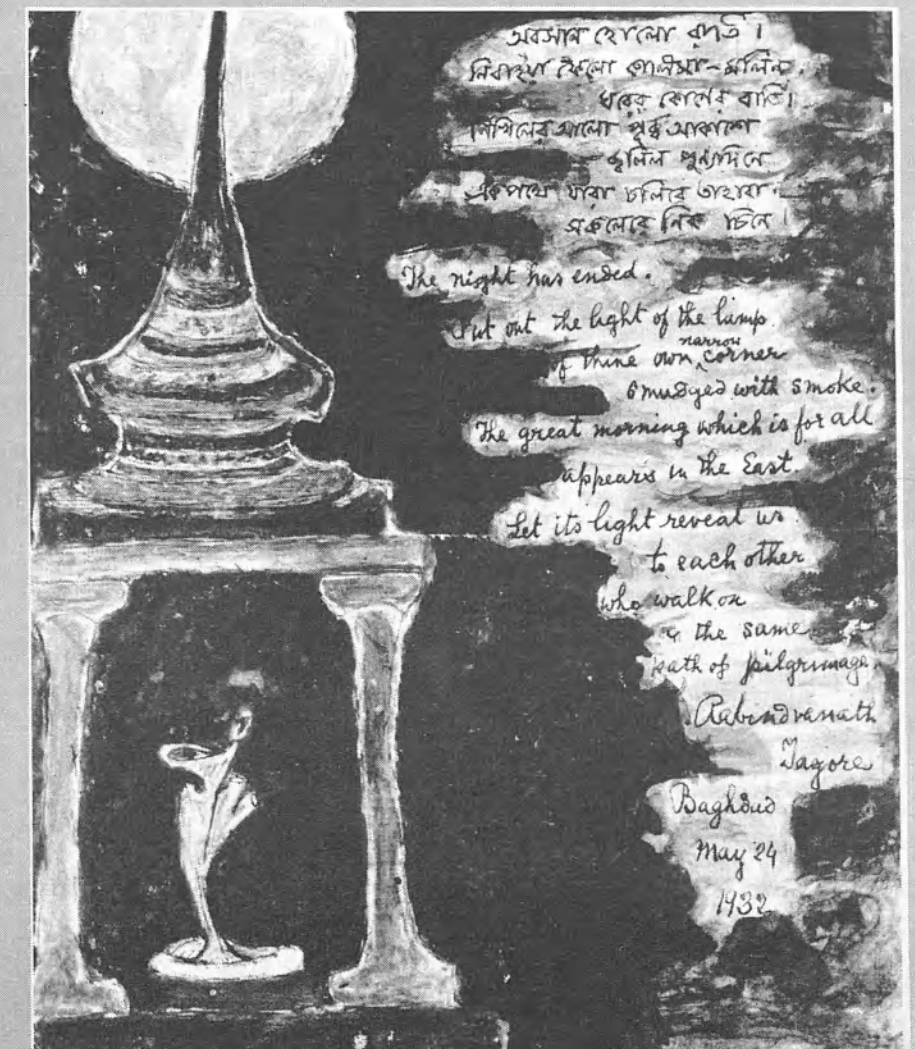 অবসান হোলো রাতি।
নিবাইয়া ফেলো কালিমা-মলিন
ঘরের কোণের বাতি।
নিখিলের আলো পূর্ব্ব আকাশে
জ্বলিল পুণ্যদিনে
একপথে যারা চলিবে তাহারা
সকলেরে নিক চিনে।
The night has ended.
Put out the light of the lamp
of thine own narrow corner
smudged with smoke.
The great morning which is for all
appears in the East.
Let its light reveal us
to each other
who walk on
the same
path of pilgrimage.
Rabindranath
Tagore
Baghdad
May 24
1932